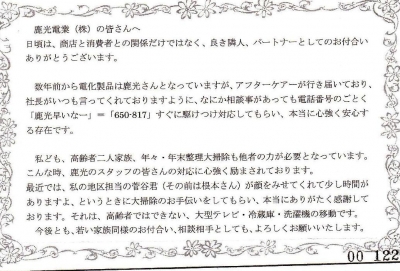 鹿光電業（株）の皆さんへ
日頃は、商店と消費者との関係だけではなく、良き隣人、パートナーとしてのお付合い
ありがとうございます。
数年前から電化製品は鹿光さんとなっていますが、アフターケアーが行き届いており、
社長がいつも言ってくれておりますように、なにか相談事があっても電話番号のごとく
「鹿光早いなー」＝「650-817」すぐに駆けつけ対応してもらい、本当に心強く安心す
る存在です。
私ども、高齢者二人家族、年々・年末整理大掃除も他者の力が必要となっています。
こんな時、鹿光のスタッフの皆さんの対応に心強く励まされております。
最近では、私の地区担当の菅谷君（その前は根本さん）が顔をみせてくれて少し時間が
ありますよ、というときに大掃除のお手伝いをしてもらい、本当にありがたく感謝して
おります。それは、高齢者ではできない、大型テレビ・冷蔵庫・洗濯機の移動です。
今後とも、若い家族同様のお付合い、相談相手としても、よろしくお願いいたします。
00 122